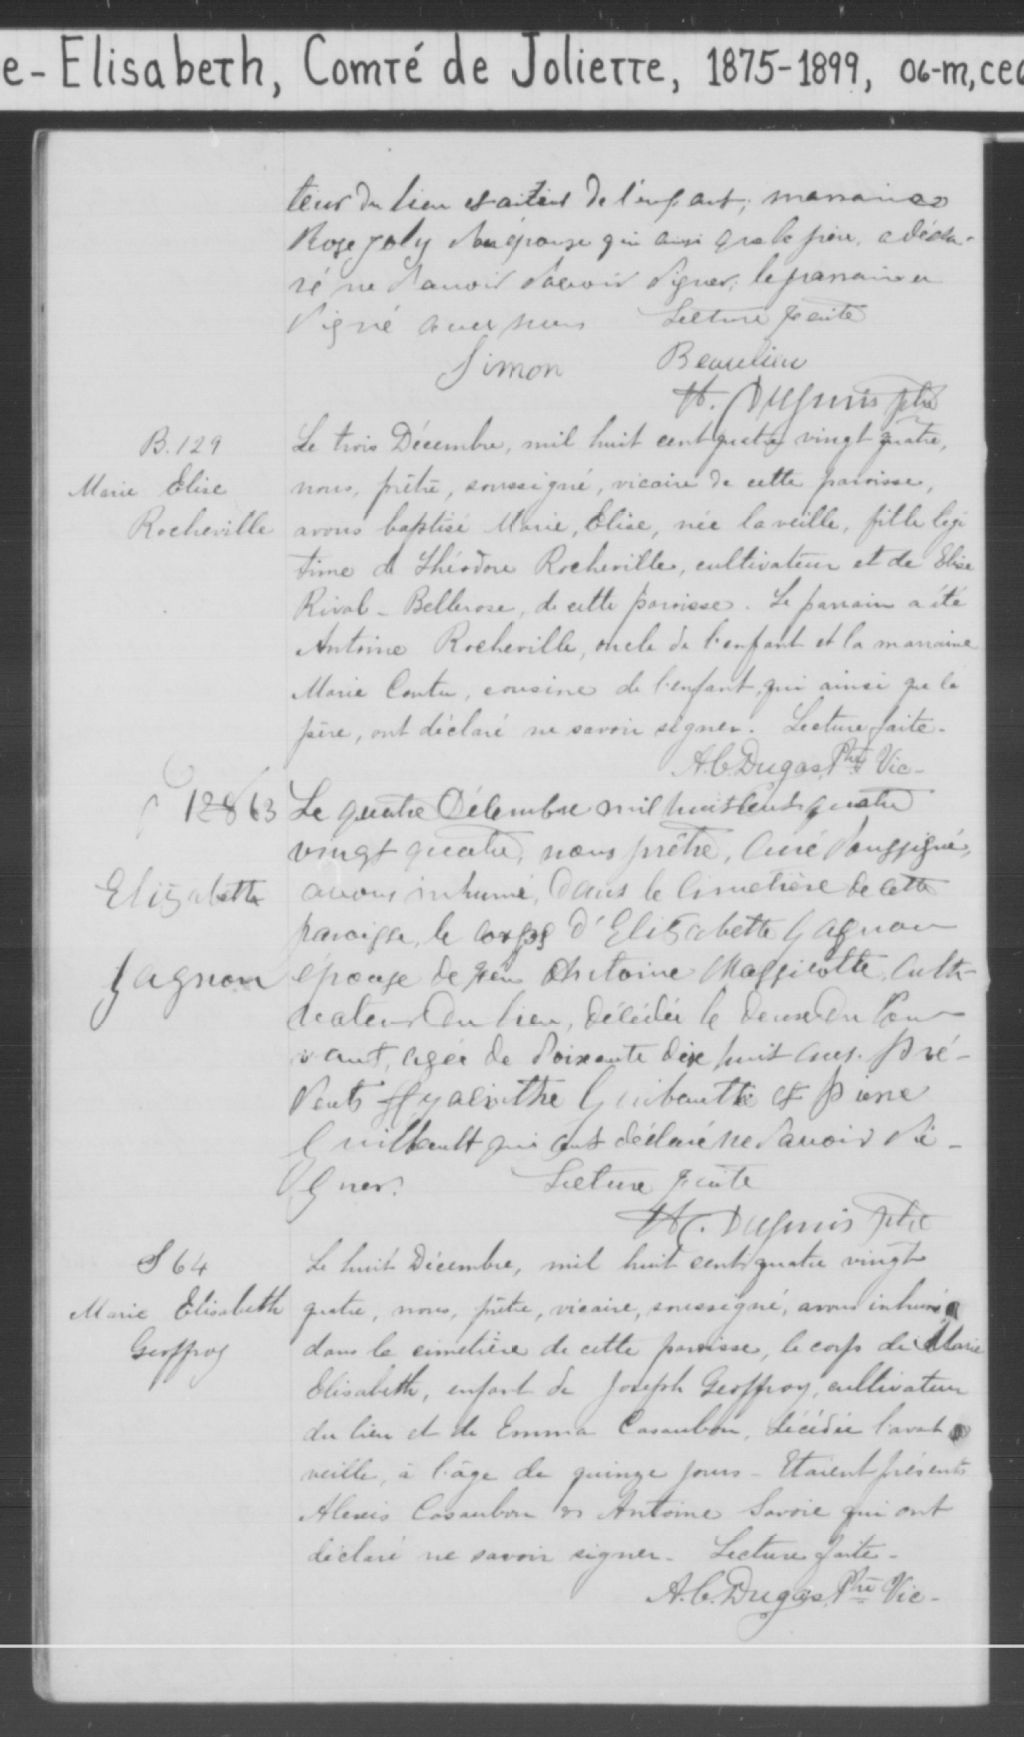 e-Elisabeth, Comté de Joliette, 1875-1899, 06-m, ce6
teur du lieu et aïeul de l'enfant, marraine
Rose Joly son épouse qui ainsi que le père, a décla-
ré ne savoir signer; le parrain a
signé avec nous Lecture faite
Simon Beaulieu
H. Dupuis ptre
B. 129
Marie Elise
Rocheville
Le trois Décembre, mil huit cent quatre vingt quatre,
nous, prêtre, soussigné, vicaire de cette paroisse,
avons baptisé Marie, Elise, née la veille, fille légi
time de Théodore Rocheville, cultivateur et de Elise
Rival-Bellerose, de cette paroisse. Le parrain a été
Antoine Rocheville, oncle de l'enfant et la marraine
Marie Coutu, cousine de l'enfant, qui ainsi que le
père, ont déclaré ne savoir signer. Lecture faite.
A.C. Dugas, Ptre Vic-
S 128 63
Elizabette
Gagnon
Le quatre Décembre mil huit cent quatre
vingt quatre, nous prêtre, curé soussigné,
avons inhumé, dans le cimetière de cette
paroisse, le corps d'Elisabette Gagnon
épouse de feu Antoine Massicotte, culti-
vateur du lieu, décédée le deux du cou-
rant, agée de soixante dix huit ans. Pré-
sents Hyacinthe Guibault et Pierre
Guilbault qui ont déclaré ne savoir si-
gner. Lecture faite
H. Dupuis ptre
S 64
Marie Elisabeth
Geoffroy
Le huit Décembre, mil huit cent quatre vingt
quatre, nous, prêtre, vicaire, soussigné, avons inhumé
dans le cimetière de cette paroisse, le corps de Marie
Elisabeth, enfant de Joseph Geoffroy, cultivateur
du lieu et de Emma Casaubon, décédée l'avant
veille, à l'âge de quinze jours - Etaient présents
Alexis Casaubon & Antoine Savoie qui ont
déclaré ne savoir signer - Lecture faite -
A.C. Dugas, Ptre Vic-